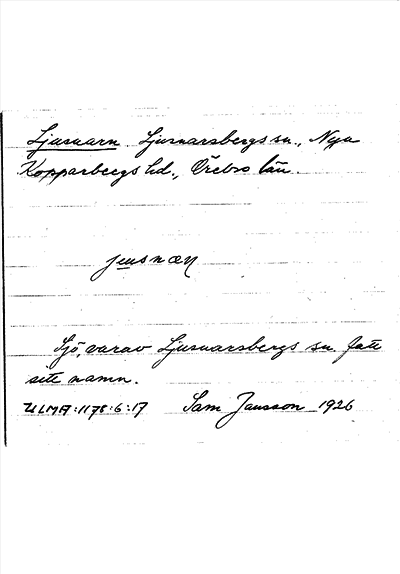 Ljusnarn Ljusnarsbergs sn., Nya
Kopparbergs hd., Örebro län.
jusnæṇ
Sjö, varav Ljusnarsbergs sn. fått
sitt namn.
ULMA:1178:6:17 Sam Jansson 1926